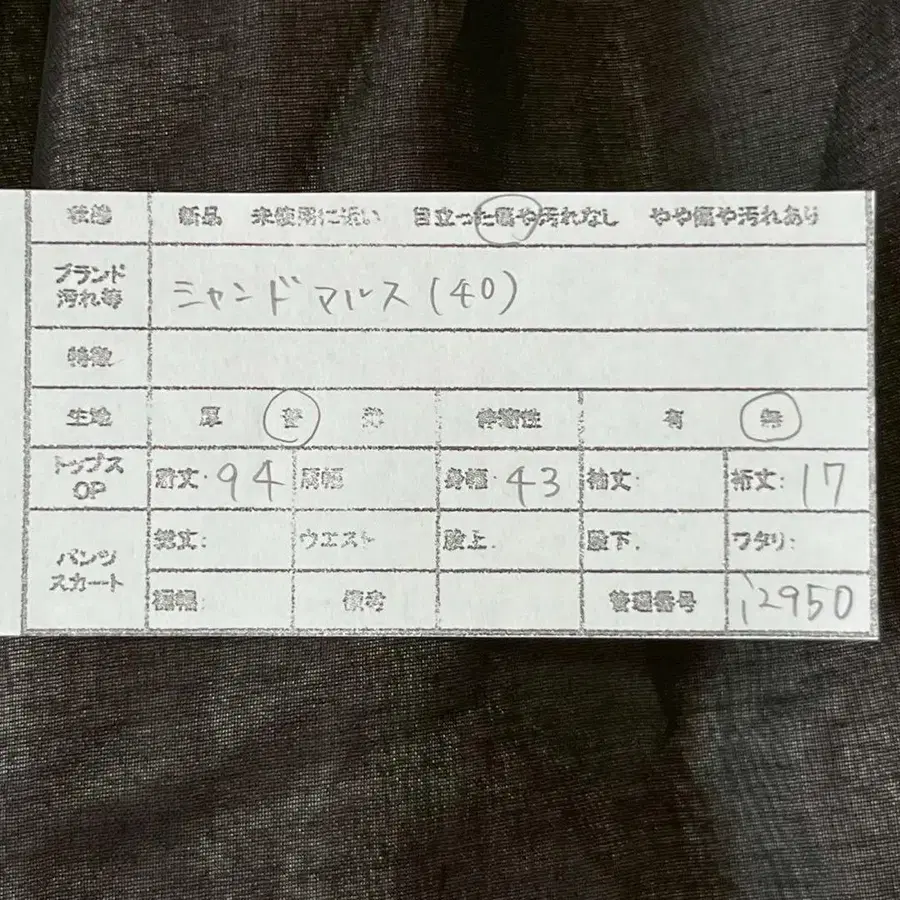 状態 新品 未使用に近い 目立った傷や汚れなし やや傷や汚れあり
ブランド
汚れ等 シャンドマルス(40)
特徴
生地 厚 普 薄 伸縮性 有 無
トップス
OP 着丈:94 肩幅 身幅:43 袖丈: 裄丈:17
パンツ
スカート 総丈: ウエスト 股上. 股下. ワタリ:
裾幅: 備考 管理番号 i2950